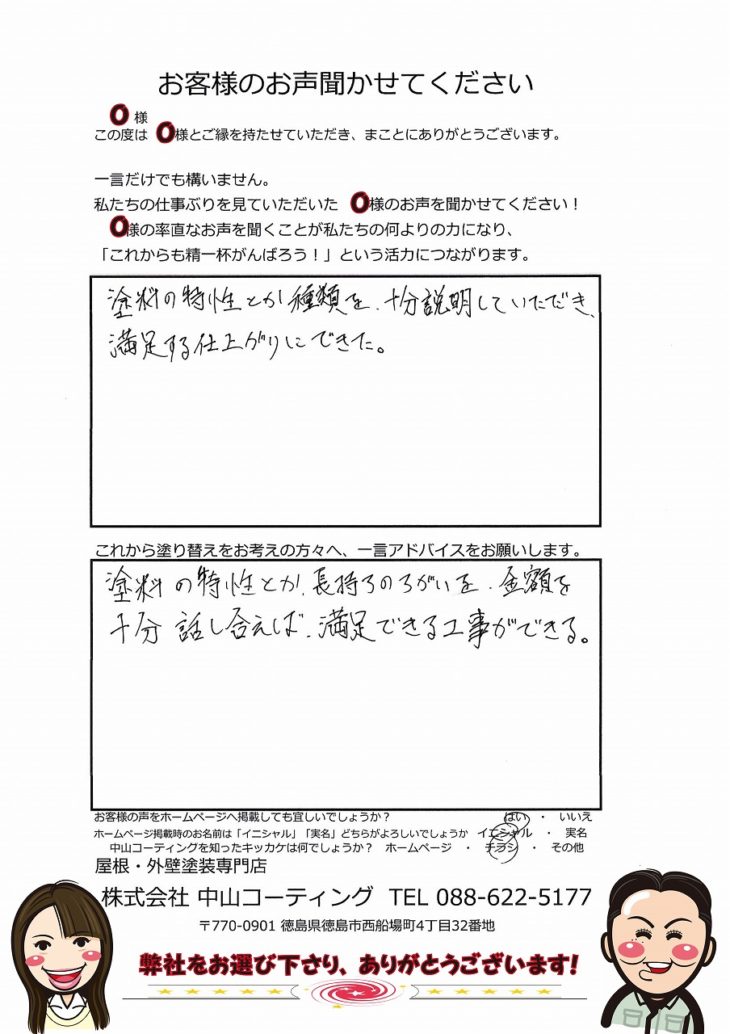 お客様のお声聞かせてください
O 様
この度は O様とご縁を持たせていただき、まことにありがとうございます。
一言だけでも構いません。
私たちの仕事ぶりを見ていただいた O様のお声を聞かせてください！
O様の率直なお声を聞くことが私たちの何よりの力になり、
「これからも精一杯がんばろう！」という活力につながります。
塗料の特性とか種類を、十分説明していただき、
満足する仕上がりにできた。
これから塗り替えをお考えの方々へ、一言アドバイスをお願いします。
塗料の特性とか、長持ちのちがいを、金額を
十分話し合えば、満足できる工事ができる。
お客様の声をホームページへ掲載しても宜しいでしょうか？ はい ・ いいえ
ホームページ掲載時のお名前は「イニシャル」「実名」どちらがよろしいでしょうか イニシャル ・ 実名
中山コーティングを知ったキッカケは何でしょうか？ ホームページ ・ チラシ ・ その他
屋根・外壁塗装専門店
株式会社 中山コーティング TEL 088-622-5177
〒770-0901 徳島県徳島市西船場町4丁目32番地
弊社をお選び下さり、ありがとうございます!